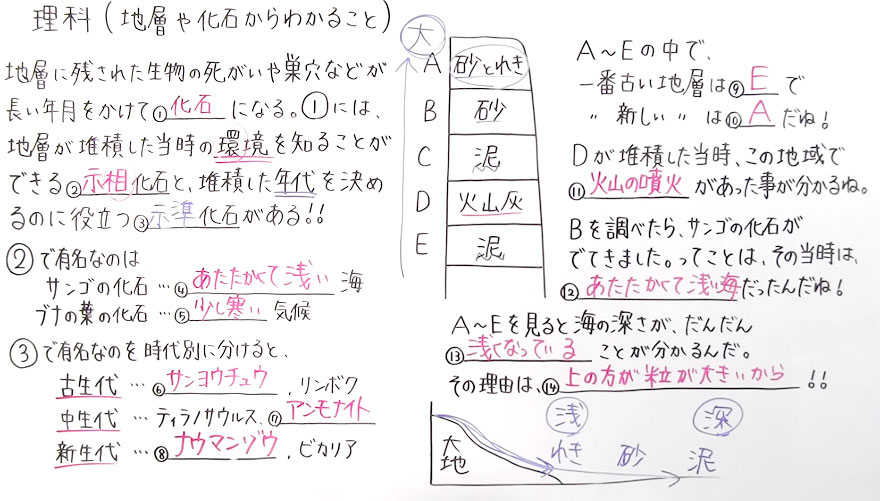 理科(地層や化石からわかること)
地層に残された生物の死がいや巣穴などが
長い年月をかけて①化石になる。①には、
地層が堆積した当時の環境を知ることが
できる②示相化石と、堆積した年代を決め
るのに役立つ③示準化石がある!!
②で有名なのは
サンゴの化石…④あたたかくて浅い海
ブナの葉の化石…⑤少し寒い気候
③で有名なのを時代別に分けると、
古生代…⑥サンヨウチュウ、リンボク
中生代…ティラノサウルス、⑦アンモナイト
新生代…⑧ナウマンゾウ、ビカリア
大
A 砂とれき
B 砂
C 泥
D 火山灰
E 泥
A~Eの中で、
一番古い地層は⑨Eで
〃 新しい 〃 は⑩Aだね!
Dが堆積した当時、この地域で
⑪火山の噴火があった事が分かるね。
Bを調べたら、サンゴの化石が
でてきました。ってことは、その当時は、
⑫あたたかくて浅い海だったんだね!
A~Eを見ると海の深さが、だんだん
⑬浅くなっていることが分かるんだ。
その理由は、⑭上の方が粒が大きいから!!
浅 深
大地 れき 砂 泥